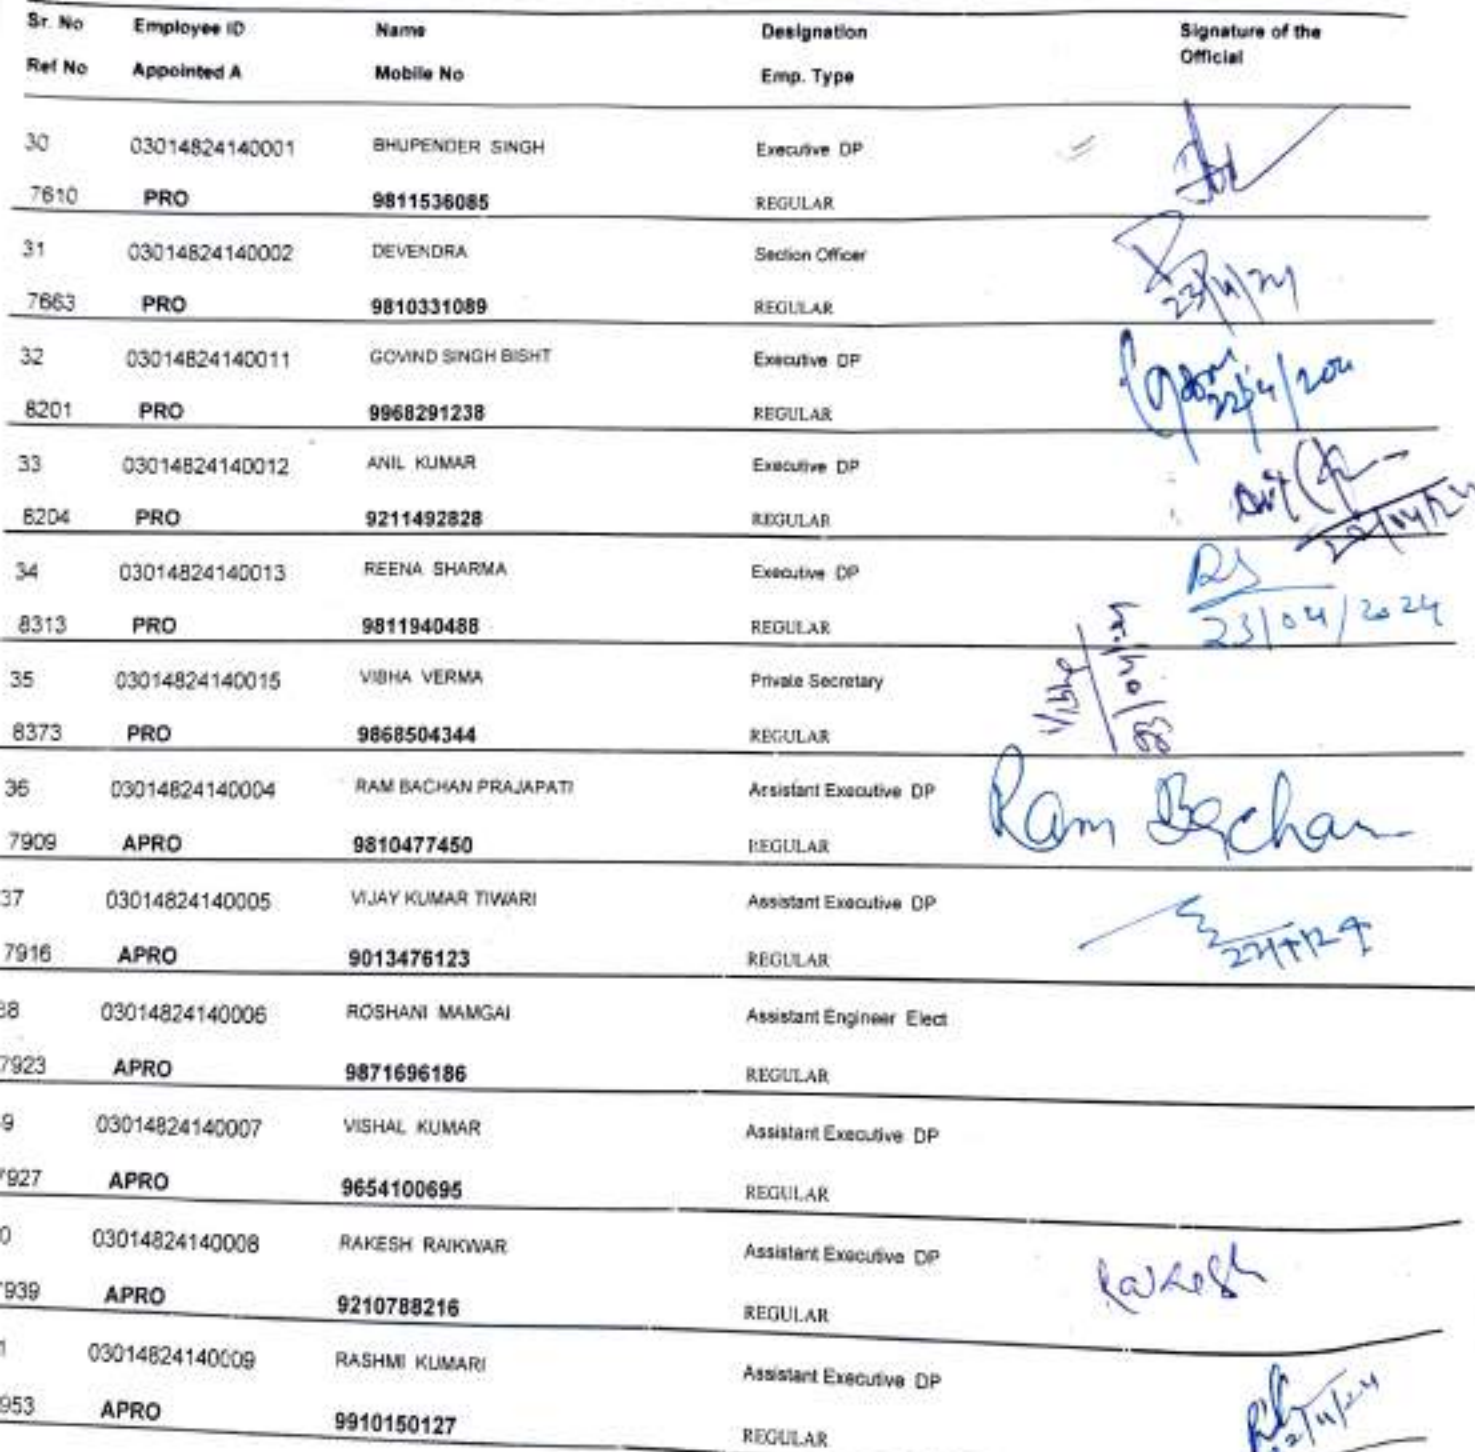 Sr. No Employee ID Name Designation Signature of the
Official
Ref No Appointed A Mobile No Emp. Type
30 03014824140001 BHUPENDER SINGH Executive DP
7610 PRO 9811536085 REGULAR
31 03014824140002 DEVENDRA Section Officer
7663 PRO 9810331089 REGULAR
23/4/24
32 03014824140011 GOVIND SINGH BISHT Executive DP
8201 PRO 9968291238 REGULAR
33 03014824140012 ANIL KUMAR Executive DP
8204 PRO 9211492828 REGULAR
34 03014824140013 REENA SHARMA Executive DP
RS
8313 PRO 9811940488 REGULAR
23/04/2024
35 03014824140015 VIBHA VERMA Private Secretary
Vibha
8373 PRO 9868504344 REGULAR
36 03014824140004 RAM BACHAN PRAJAPATI Assistant Executive DP
Ram Bachan
7909 APRO 9810477450 REGULAR
37 03014824140005 VIJAY KUMAR TIWARI Assistant Executive DP
7916 APRO 9013476123 REGULAR
38 03014824140006 ROSHANI MAMGAI Assistant Engineer Elect
7923 APRO 9871696186 REGULAR
9 03014824140007 VISHAL KUMAR Assistant Executive DP
7927 APRO 9654100695 REGULAR
0 03014824140008 RAKESH RAIKWAR Assistant Executive DP
Rakesh
7939 APRO 9210788216 REGULAR
1 03014824140009 RASHMI KUMARI Assistant Executive DP
953 APRO 9910150127 REGULAR